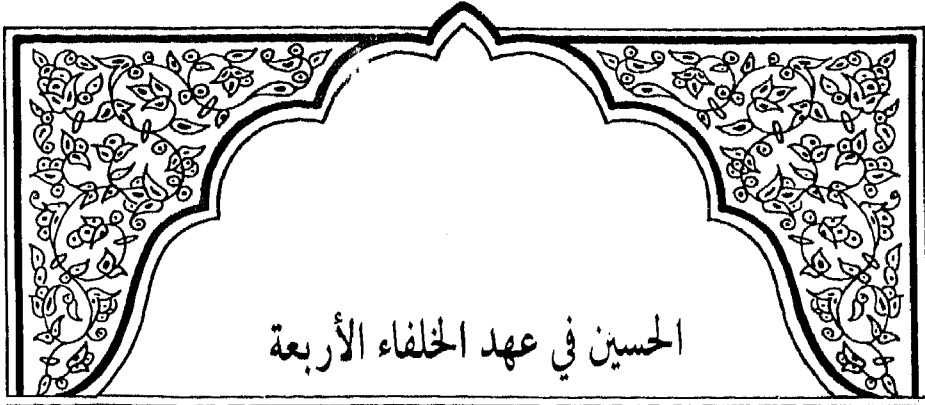 الحسين في عهد الخلفاء الأربعة